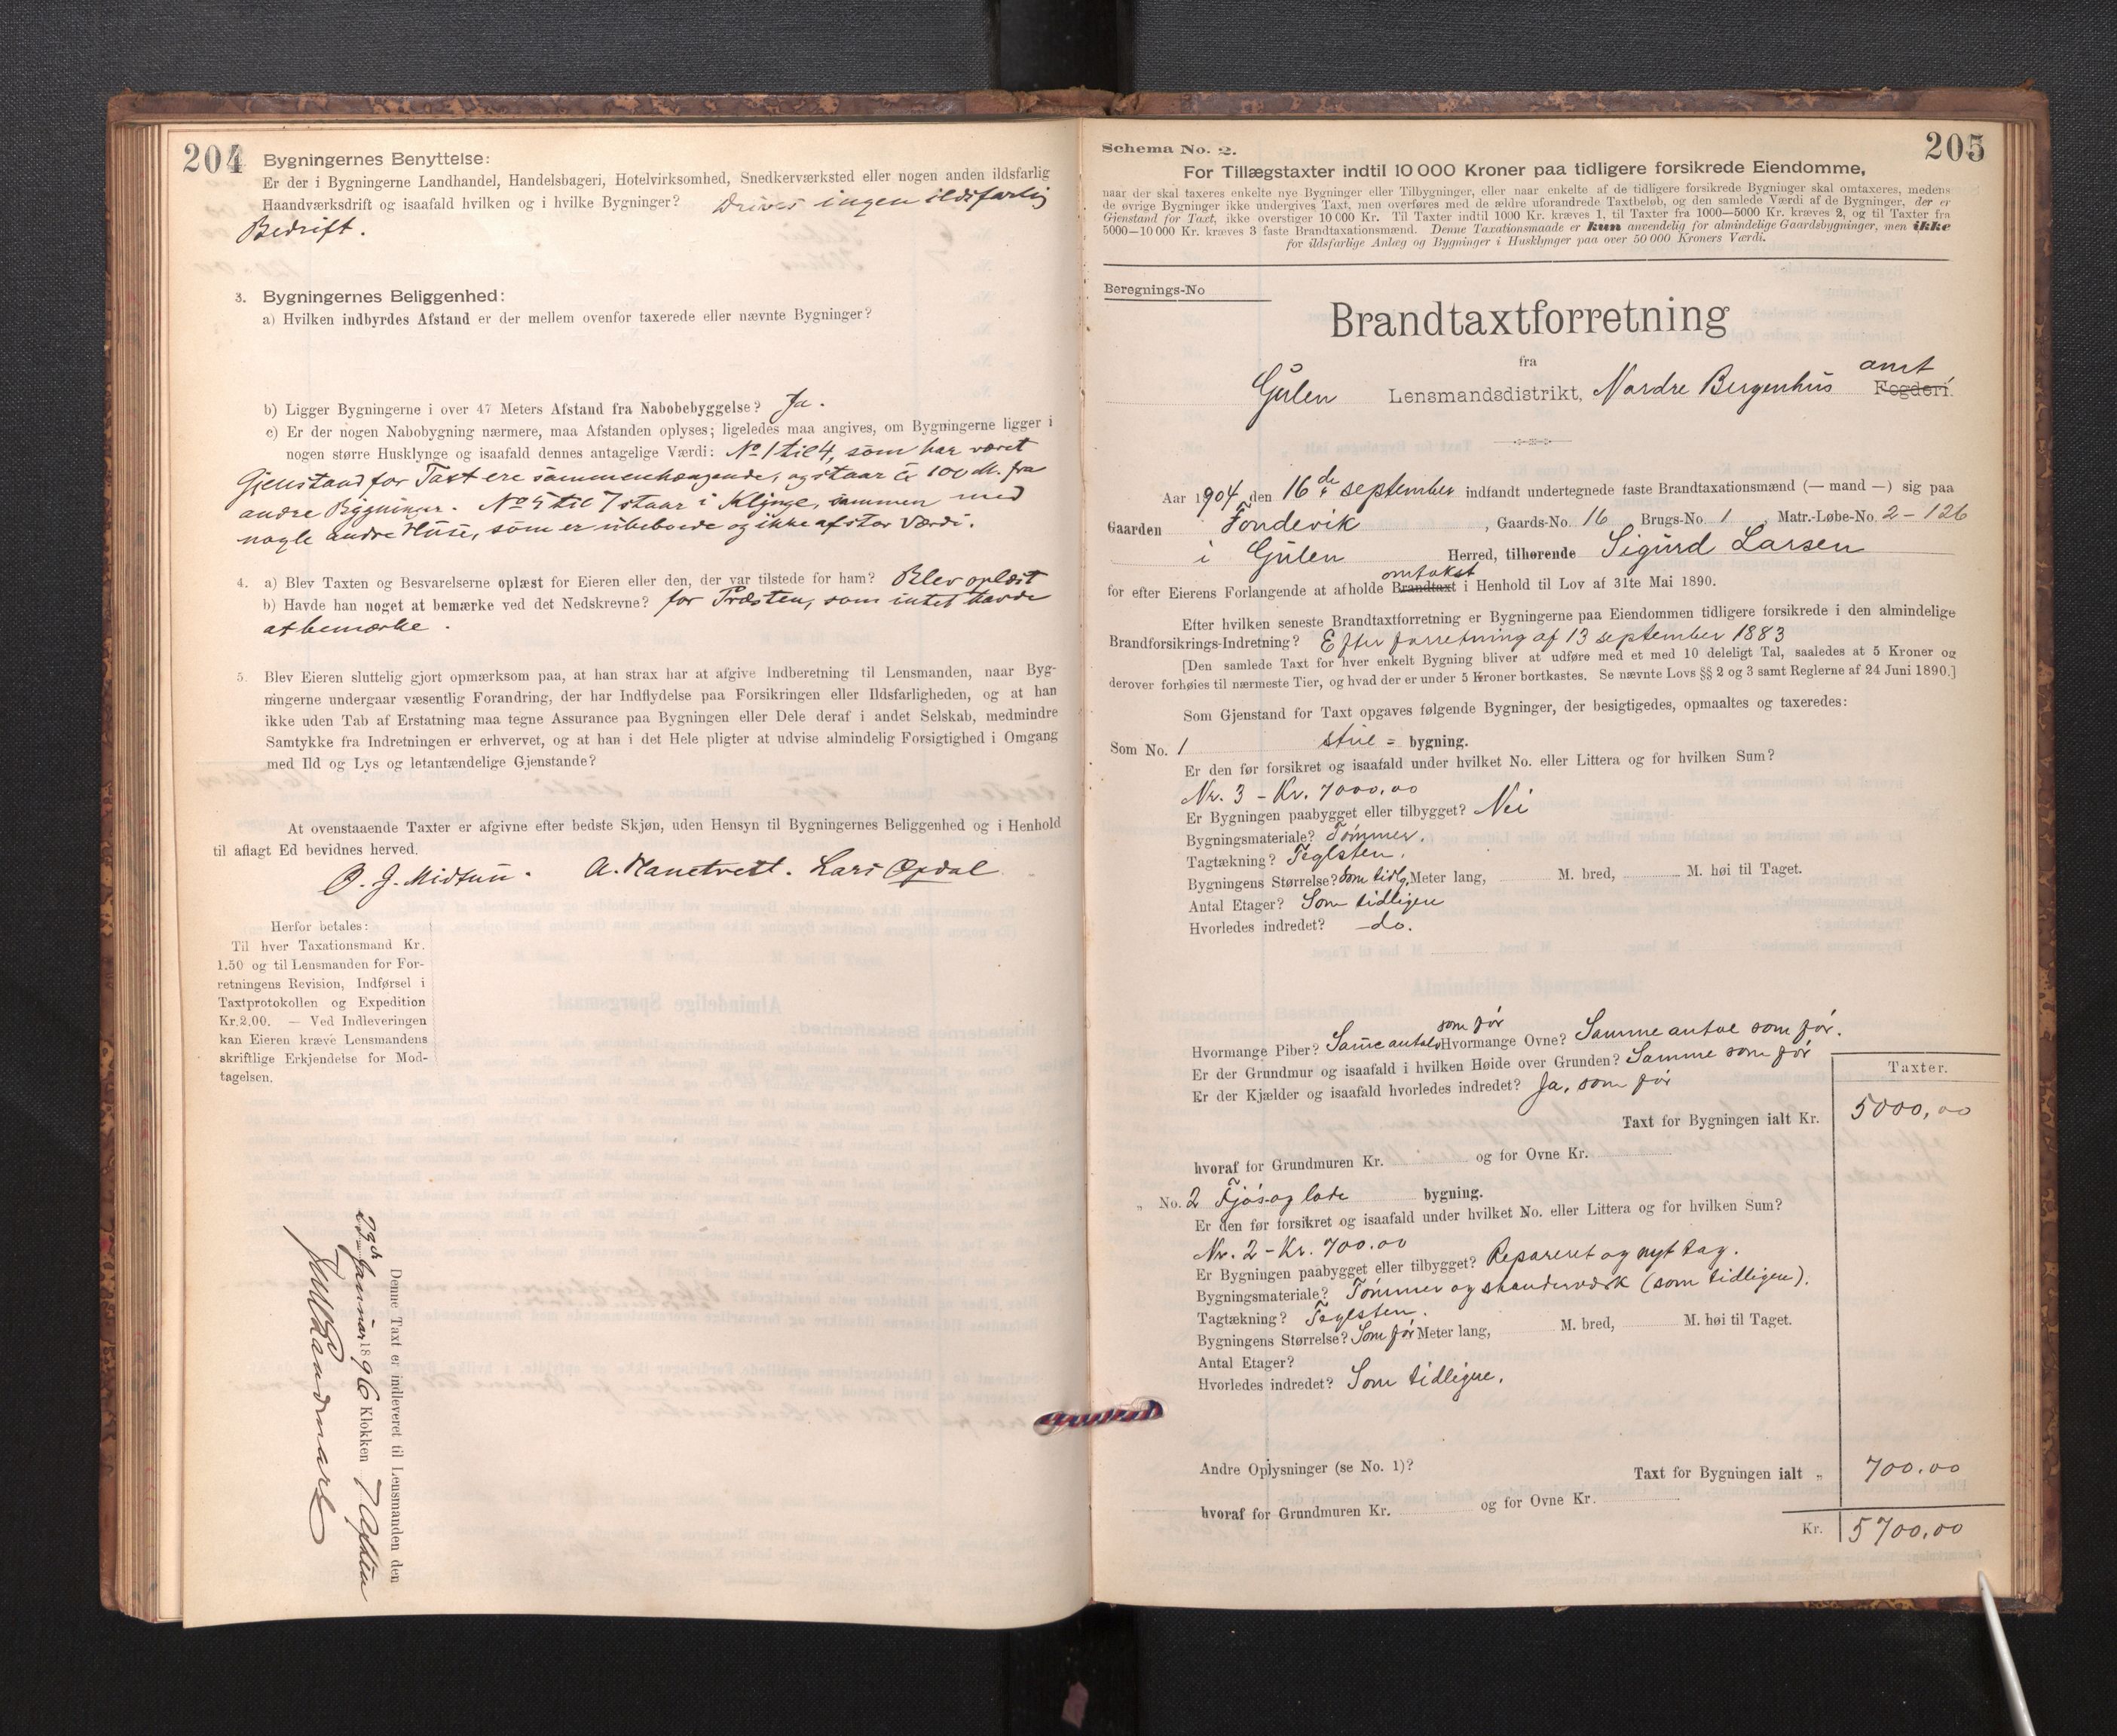 204
Bygningernes Benyttelse:
Er der i Bygningerne Landhandel, Handelsbageri, Hotelvirksomhed, Snedkerværksted eller nogen anden ildsfarlig
Haandværksdrift og isaafald hvilken og i hvilke Bygninger? Drives ingen ildsfarlig
Bedrift.
3. Bygningernes Beliggenhed:
a) Hvilken indbyrdes Afstand er der mellem ovenfor taxerede eller nævnte Bygninger?
b) Ligger Bygningerne i over 47 Meters Afstand fra Nabobebyggelse? Ja.
c) Er der nogen Nabobygning nærmere, maa Afstanden oplyses; ligeledes maa angives, om Bygningerne ligger i
nogen større Husklynge og isaafald dennes antagelige Værdi: No 1 til 4, som har været
Gjenstand for Taxt ere sammenhængende, og staar à 100 M. fra
andre Bygninger. No 5 til 7 staar i Klynge, sammen med
nogle andre Huse, som er ubeboede og ikke af stor Værdi.
4. a) Blev Taxten og Besvarelserne oplæst for Eieren eller den, der var tilstede for ham? Blev oplæst
b) Havde han noget at bemærke ved det Nedskrevne? for Præsten, som intet havde
at bemærke.
5. Blev Eieren sluttelig gjort opmærksom paa, at han strax har at afgive Indberetning til Lensmanden, naar Byg-
ningerne undergaar væsentlig Forandring, der har Indflydelse paa Forsikringen eller Ildsfarligheden, og at han
ikke uden Tab af Erstatning maa tegne Assurance paa Bygningen eller Dele deraf i andet Selskab, medmindre
Samtykke fra Indretningen er erhvervet, og at han i det Hele pligter at udvise almindelig Forsigtighed i Omgang
med Ild og Lys og letantændelige Gjenstande?
At ovenstaaende Taxter er afgivne efter bedste Skjøn, uden Hensyn til Bygningernes Beliggenhed og i Henhold
til aflagt Ed bevidnes herved.
O. J. Midtun. A. Hanetvedt. Lars Opdal
Herfor betales:
Til hver Taxationsmand Kr.
1.50 og til Lensmanden for For-
retningens Revision, Indførsel i
Taxtprotokollen og Expedition
Kr.2,00. — Ved Indleveringen
kan Eieren kræve Lensmandens
skriftlige Erkjendelse for Mod-
tagelsen.
Denne Taxt er indleveret til Lensmanden den
29de Januar 1896 Klokken 7 Aften
205
Schema No. 2.
For Tillægstaxter indtil 10 000 Kroner paa tidligere forsikrede Eiendomme,
naar der skal taxeres enkelte nye Bygninger eller Tilbygninger, eller naar enkelte af de tidligere forsikrede Bygninger skal omtaxeres, medens
de øvrige Bygninger ikke undergives Taxt, men overføres med de ældre uforandrede Taxtbeløb, og den samlede Værdi af de Bygninger, der er
Gjenstand for Taxt, ikke overstiger 10 000 Kr. Til Taxter indtil 1000 Kr. kræves 1, til Taxter fra 1000—5000 Kr. kræves 2, og til Taxter fra
5000—10 000 Kr. kræves 3 faste Brandtaxationsmænd. Denne Taxationsmaade er kun anvendelig for almindelige Gaardsbygninger, men ikke
for ildsfarlige Anlæg og Bygninger i Husklynger paa over 50 000 Kroners Værdi.
Beregnings-No
Brandtaxtforretning
fra
amt
Gulen Lensmandsdistrikt, Nordre Bergenhus Fogderi.
Aar 1904, den 16de september indfandt undertegnede faste Brandtaxationsmænd (— mand —) sig paa
Gaarden Fondevik, Gaards-No. 16 Brugs-No. 1, Matr.-Løbe-No. 2 - 126
i Gulen Herred, tilhørende Sigurd Larsen
omtakst
for efter Eierens Forlangende at afholde Brandtaxt i Henhold til Lov af 31te Mai 1890.
Efter hvilken seneste Brandtaxtforretning er Bygningerne paa Eiendommen tidligere forsikrede i den almindelige
Brandforsikrings-Indretning? Efter forretning af 13 september 1883
[Den samlede Taxt for hver enkelt Bygning bliver at udføre med et med 10 deleligt Tal, saaledes at 5 Kroner og
derover forhøies til nærmeste Tier, og hvad der er under 5 Kroner bortkastes. Se nævnte Lovs §§ 2 og 3 samt Reglerne af 24 Juni 1890.]
Som Gjenstand for Taxt opgaves følgende Bygninger, der besigtigedes, opmaaltes og taxeredes:
Som No. 1 stue = bygning.
Er den før forsikret og isaafald under hvilket No. eller Littera og for hvilken Sum?
Nr. 3 - Kr. 7000.00
Er Bygningen paabygget eller tilbygget? Nei
Bygningsmateriale? Tømmer.
Tagtækning? Teglsten.
Bygningens Størrelse? Som tidlg. Meter lang, M. bred, M. høi til Taget.
Antal Etager? Som tidligere
Hvorledes indredet? -do.
som før
Hvormange Piber? Same antal Hvormange Ovne? Samme antal som før.
Er der Grundmur og isaafald i hvilken Høide over Grunden? Samme som før
Er der Kjælder og isaafald hvorledes indredet? Ja, som før
Taxter.
Taxt for Bygningen ialt Kr. 5000,00
hvoraf for Grundmuren Kr. og for Ovne Kr.
„ No. 2 Fjøs og løde bygning.
Er den før forsikret og isaafald under hvilket No. eller Littera og for hvilken Sum?
Nr. 2 - Kr. 700.00
Er Bygningen paabygget eller tilbygget? Repareret og nyt tag.
Bygningsmateriale? Tømmer og standerværk (som tidligere).
Tagtækning? Teglsten.
Bygningens Størrelse? Som før Meter lang, M. bred, M. høi til Taget.
Antal Etager?
Hvorledes indredet? Som tidligere.
Andre Oplysninger (se No. 1)?
Taxt for Bygningen ialt „ 700.00
hvoraf for Grundmuren Kr. og for Ovne Kr.
Kr. 5700,00